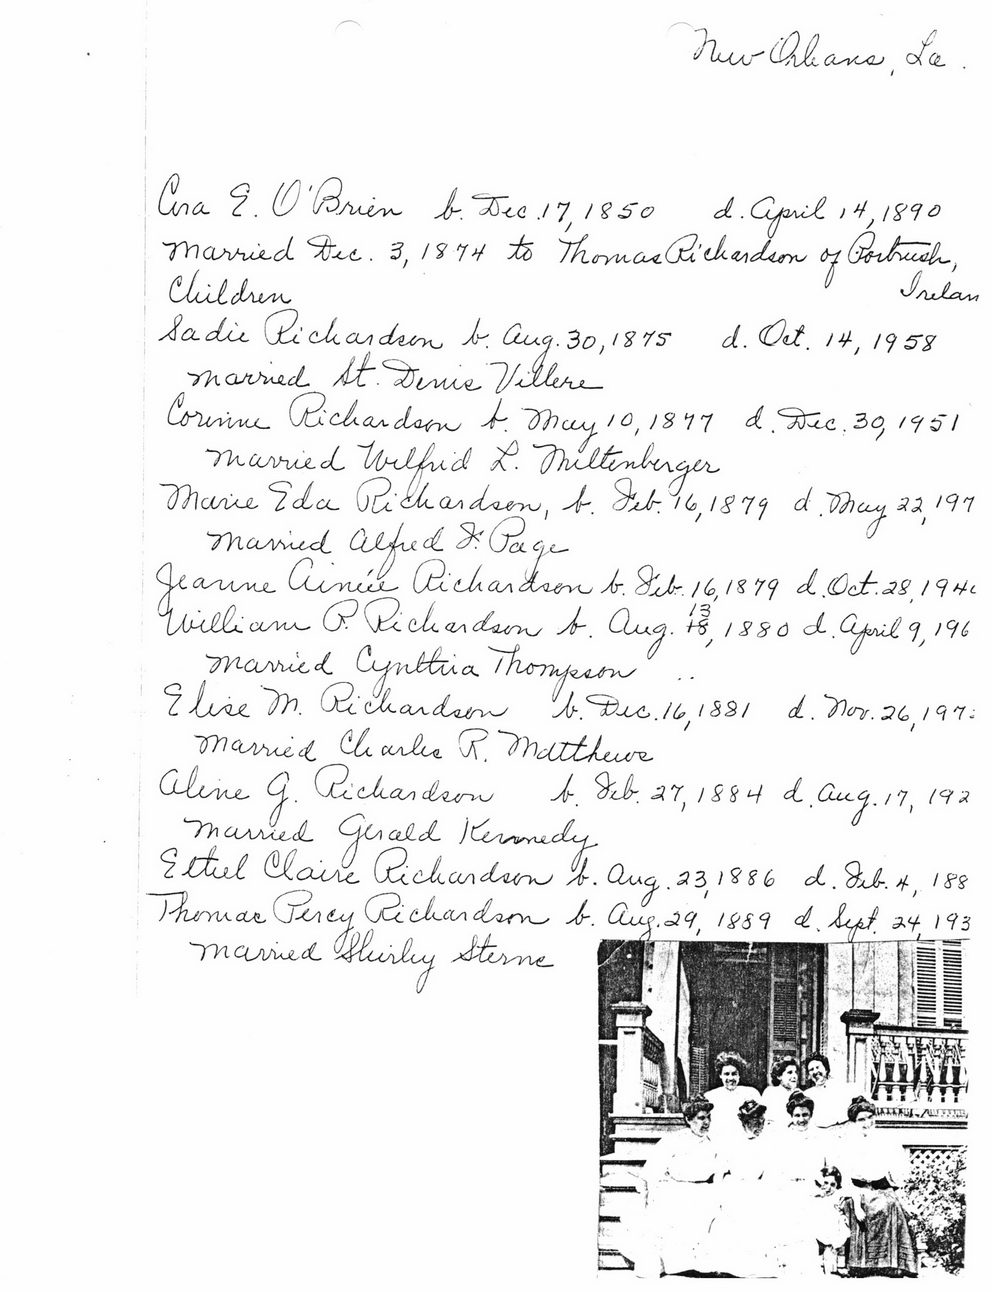 New Orleans, La.
Cora E. O'Brien b. Dec. 17, 1850 d. April 14, 1890
Married Dec. 3, 1874 to Thomas Richardson of Portrush,
Irelan
Children
Sadie Richardson b. Aug. 30, 1875 d. Oct. 14, 1958
Married St. Denis Villere
Corinne Richardson b. May 10, 1877 d. Dec. 30, 1951
Married Wilfrid L. Miltenberger
Marie Eda Richardson, b. Feb. 16, 1879 d. May 22, 197
Married Alfred F. Page
Jeanne Aimée Richardson b. Feb. 16, 1879 d. Oct. 28, 194
13
William P. Richardson b. Aug. 18, 1880 d. April 9, 196
Married Cynthia Thompson
Elise M. Richardson b. Dec. 16, 1881 d. Nov. 26, 197
Married Charles R. Matthews
Aline G. Richardson b. Feb. 27, 1884 d. Aug. 17, 192
Married Gerald Kennedy
Ethel Claire Richardson b. Aug. 23, 1886 d. Feb. 4, 188
Thomas Percy Richardson b. Aug. 29, 1889 d. Sept. 24, 193
Married Shirley Sterne